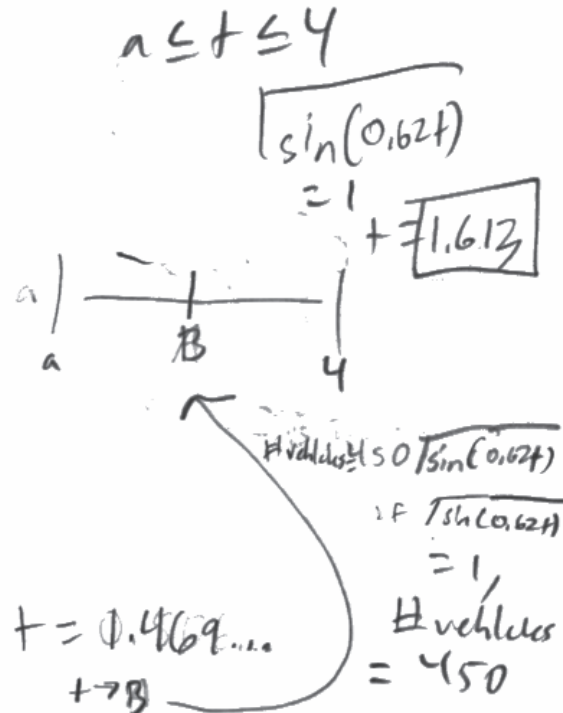 a ≤ t ≤ 4
√sin(0.62t)
= 1
t = 1.613
a
a B 4
#vehicles = 450√sin(0.62t)
if √sin(0.62t)
= 1,
#vehicles
= 450
t = 1.469...
t → B